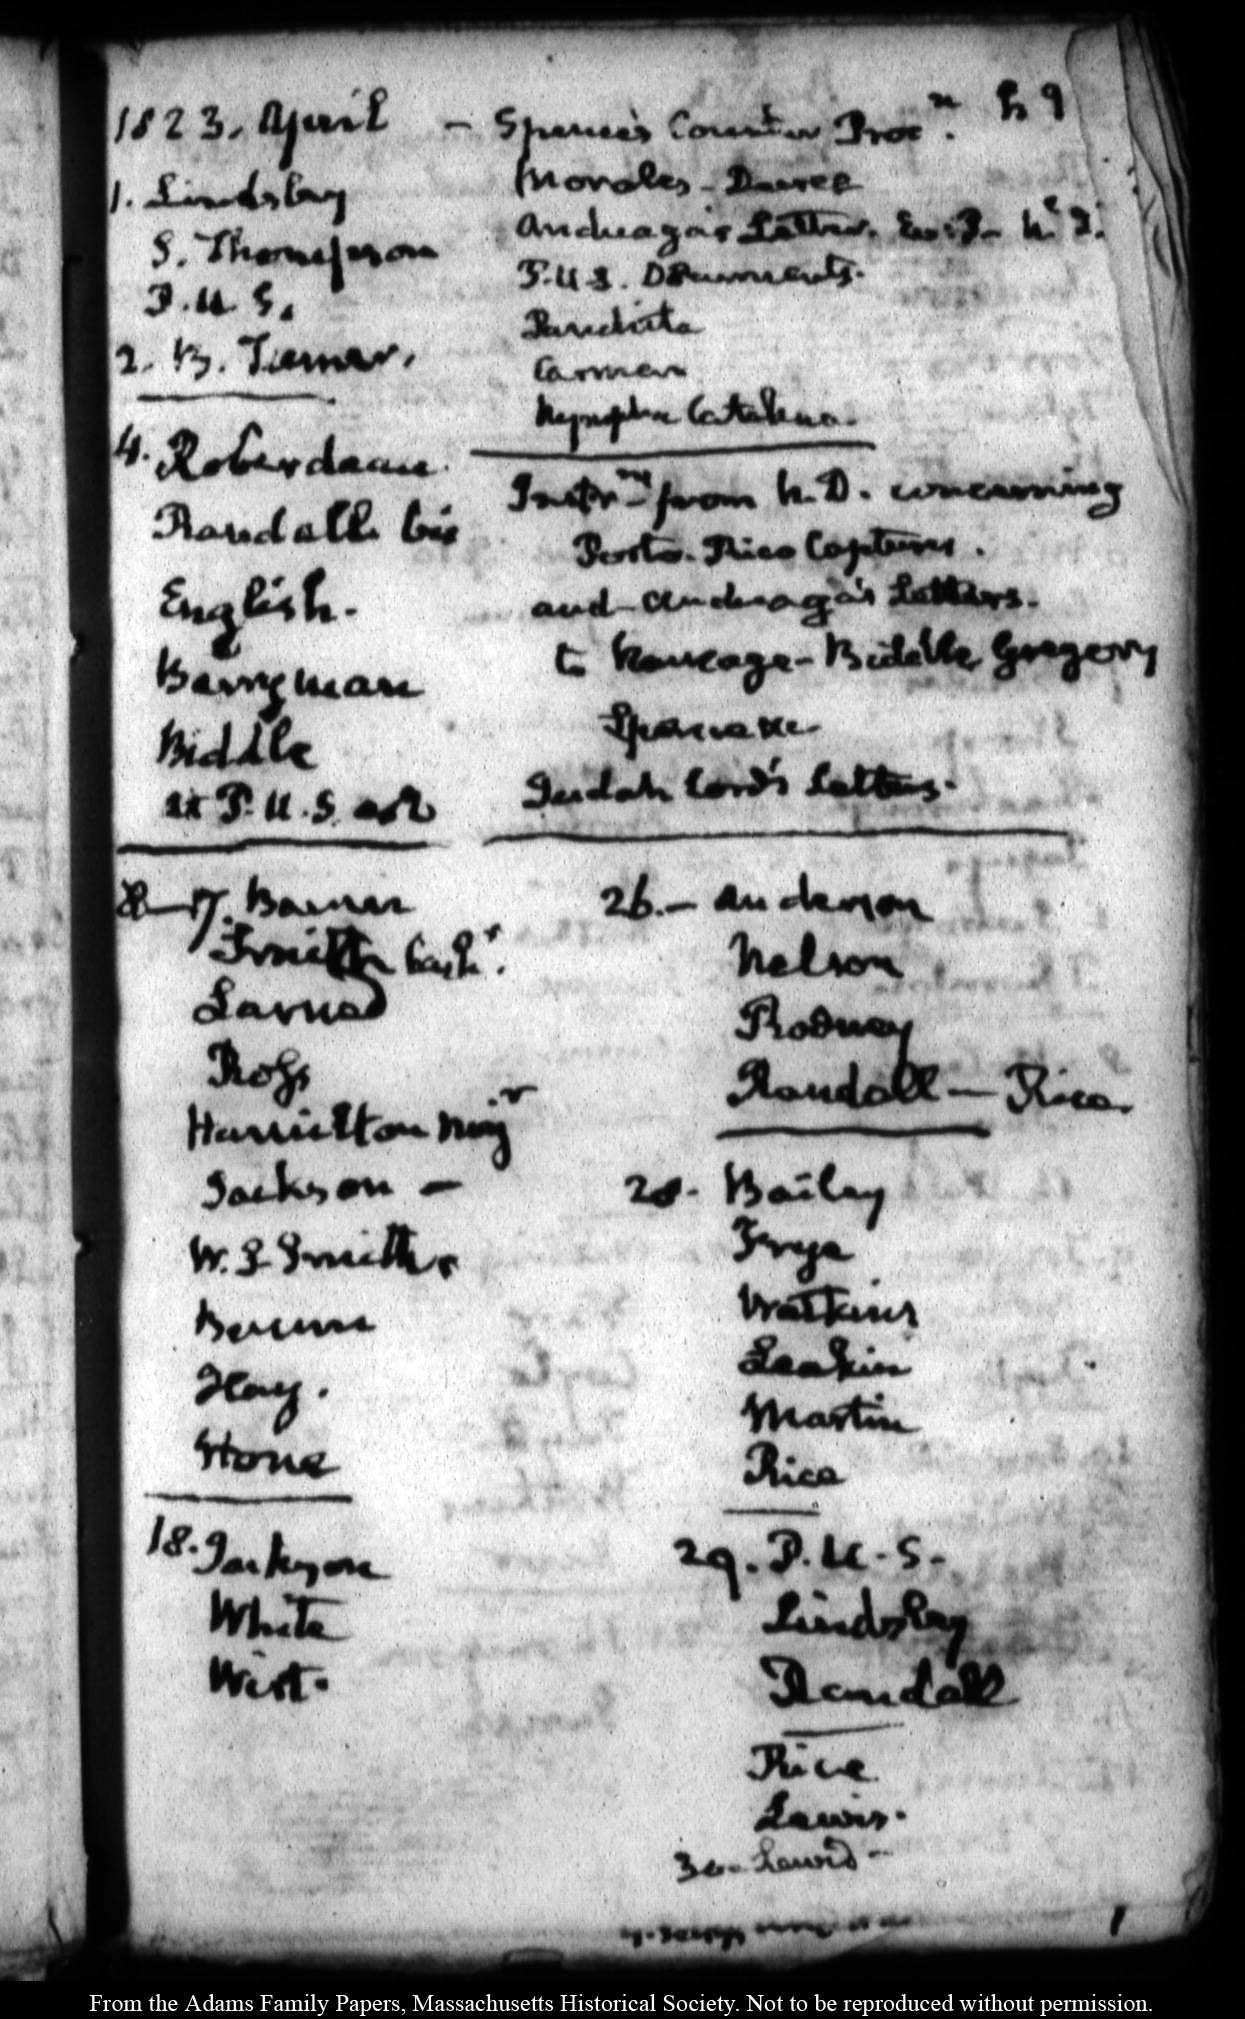 1823. April — Spence's Counter Procn. h 9
1. Lindsley
S. Thompson
P. U. S.
2. B. Turner.
Morales — Decree
Anduaga's Letter.
P. U S. Documents.
Panchita
Carmen
Nympha Catalana.
4. Roberdeau.
Randall bis
English.
Berryman
Biddle
at P. U. S.
Instrns from N. D. concerning
Porto-Rico Captures.
and Anduaga's Letters.
to Biddle Gregory
Spence
Judah Lord's Letters.
8—17. Bauer
Smith Cashr.
Larned
Ross
Hamilton Majr
Jackson —
W. S Smith.
Bruun
Hay.
Hone
18. Jackson
White
Wirt.
26.— Anderson
Nelson
Rodney
Randall — Rice.
28. Bailey
Frye
Watkins
Leakin
Martin
Rice
29. P. U. S.
Lindsley
Randall
Rice
Lewis.
30— Lewis —
From the Adams Family Papers, Massachusetts Historical Society. Not to be reproduced without permission.